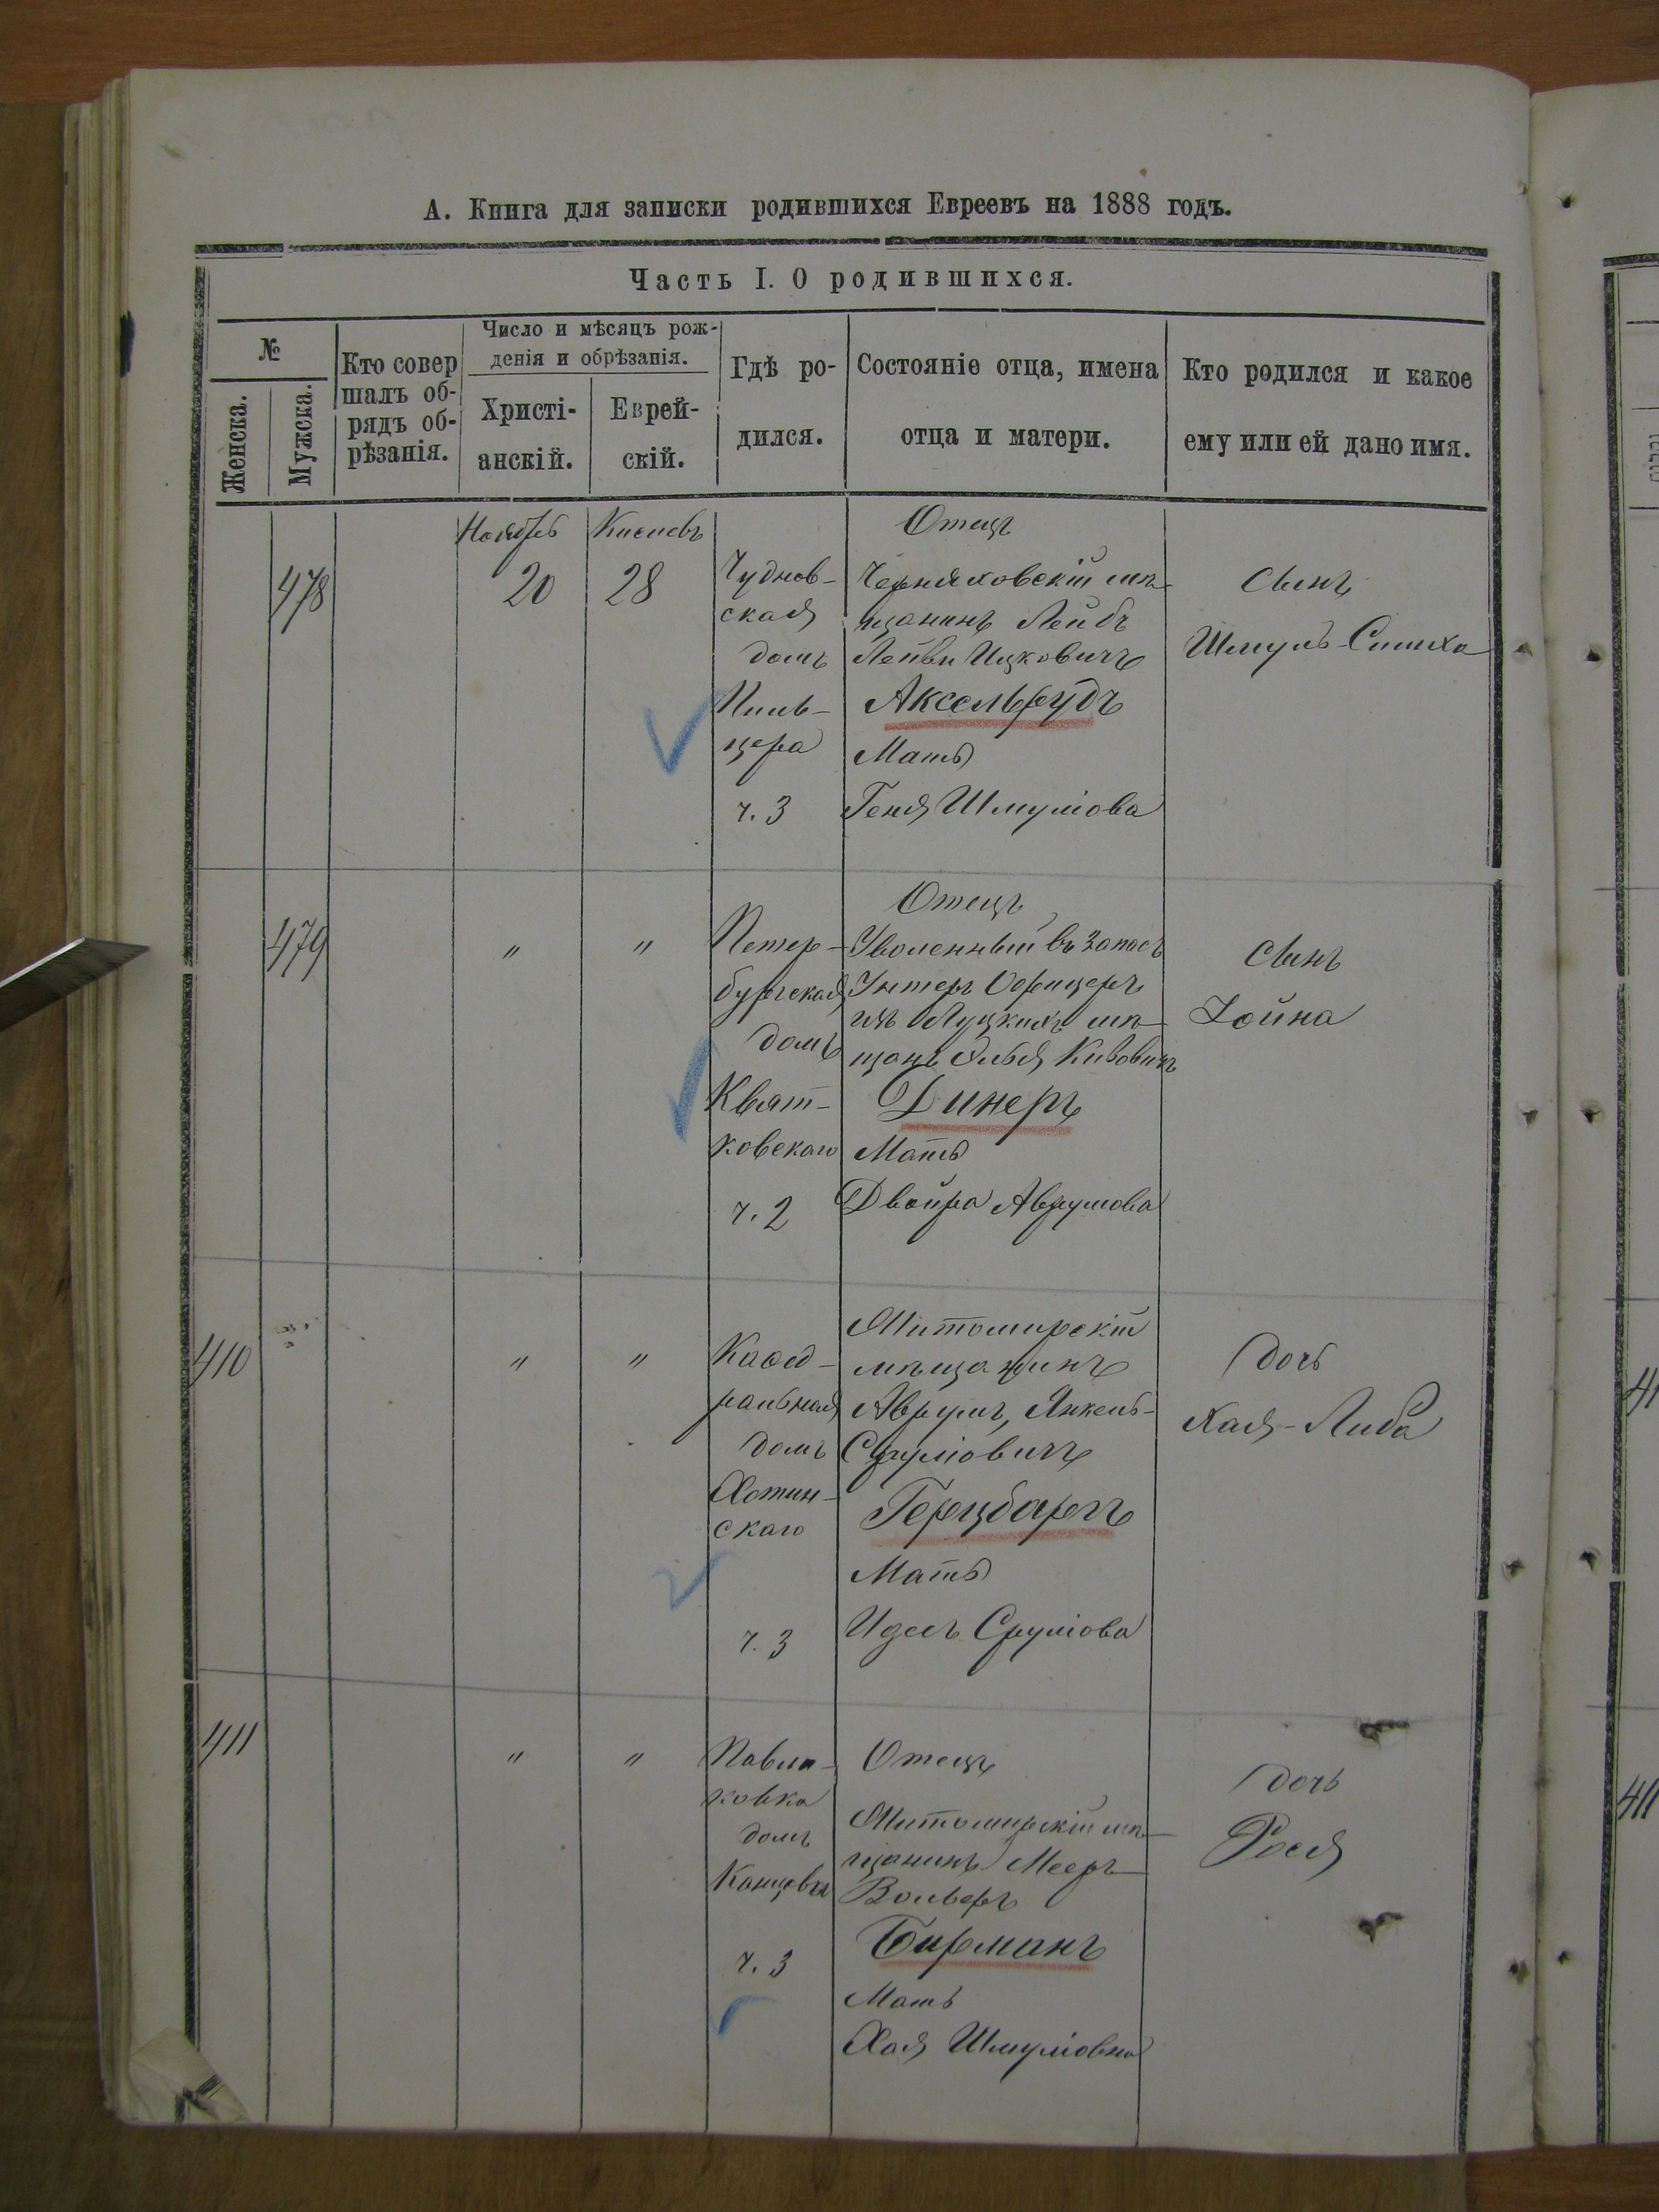 А. Книга для записки родившихся Евреевъ на 1888 годъ.
Часть I. О родившихся.
№
Женска.
Мужска.
Кто совер
шалъ об-
рядъ об-
рѣзанія.
Число и мѣсяцъ рож-
денія и обрѣзанія.
Христі-
анскій.
Еврей-
скій.
Гдѣ ро-
дился.
Состояніе отца, имена
отца и матери.
Кто родился и какое
ему или ей дано имя.
478
Ноябрь
20
Кислевъ
28
Чуднов-
ская
домъ
Пиль-
цера
ч. 3
Отецъ
Черняховскій мѣ-
щанинъ Лейбъ
Лейви Ицковичъ
Аксельрудъ
Мать
Геня Шмулiова
Сынъ
Шмуль-Симха
479
"
"
Петер-
бургская
домъ
Квят-
ковскаго
ч. 2
Отецъ
Уволенный въ запасъ
Унтеръ Офицеръ
изъ Луцкихъ мѣ-
щанъ Элья Кивовичъ
Динеръ
Мать
Двойра Аврумова
Сынъ
Хойна
410
"
"
Каѳед-
ральная
домъ
Хотин-
скаго
ч. 3
Житомирскій
мѣщанинъ
Аврумъ, Янкель-
Сруліовичъ
Герцбаргъ
Мать
Идесъ Сруліова
дочь
Хая-Либа
411
"
"
Павли-
ковка
домъ
ч. 3
Отецъ
Житомирскій мѣ-
щанинъ Мееръ
Вольверъ
Бирманъ
Мать
Хая Шмуліовна
дочь
Рося
41
411